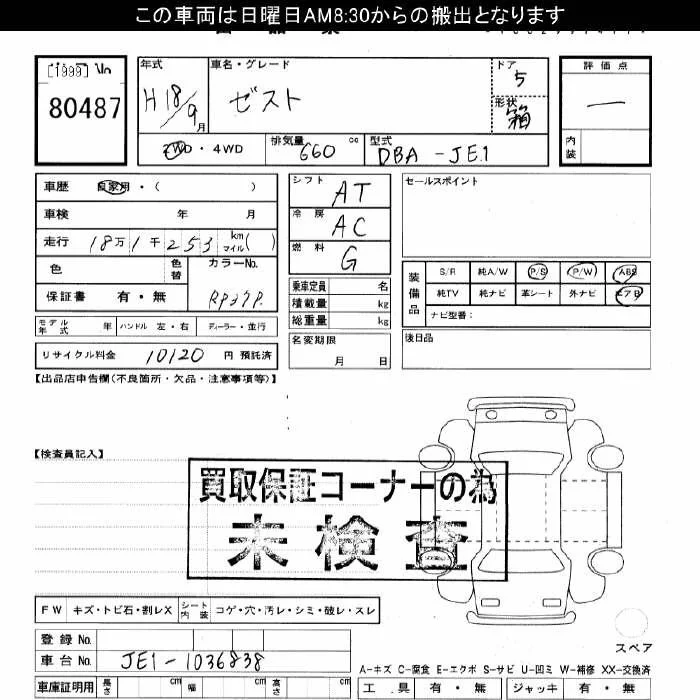 この車両は日曜日AM8:30からの搬出となります
[1999] No
80487
年式 H18/9月
車名・グレード ゼスト
ドア 5
形状 箱
評価点 ー
内装
2WD・4WD
排気量 660 cc
型式 DBA-JE1
車歴 自家用・( )
車検 年 月
走行 18万1千253 km マイル( )
色 色替 カラーNo. RP37P
保証書 有・無
シフト AT
冷房 AC
燃料 G
乗車定員 名
積載量 kg
総重量 kg
セールスポイント
装備品 S/R 純A/W P/S P/W ABS
純TV 純ナビ 革シート 外ナビ エアB
ナビ型番:
モデル年式 年 ハンドル 左・右 ディーラー・並行
名変期限 月 日
後日品
リサイクル料金 10120 円 預託済
【出品店申告欄(不良箇所・欠品・注意事項等)】
【検査員記入】
買取保証コーナーの為
未検査
FW キズ・トビ石・割レX シート内装 コゲ・穴・汚レ・シミ・破レ・スレ
登録No.
車台No. JE1-1036838
スペア
A-キズ C-腐食 E-エクボ S-サビ U-凹ミ W-補修 XX-交換済
車庫証明用 長さ cm 幅 cm 高さ cm
工具 有・無 ジャッキ 有・無